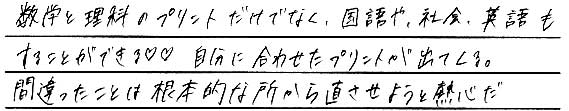 数学と理科のプリントだけでなく、国語や、社会、英語も
することができる♡♡ 自分に合わせたプリントが出てくる。
間違ったことは根本的な所から直させようと熱心だ